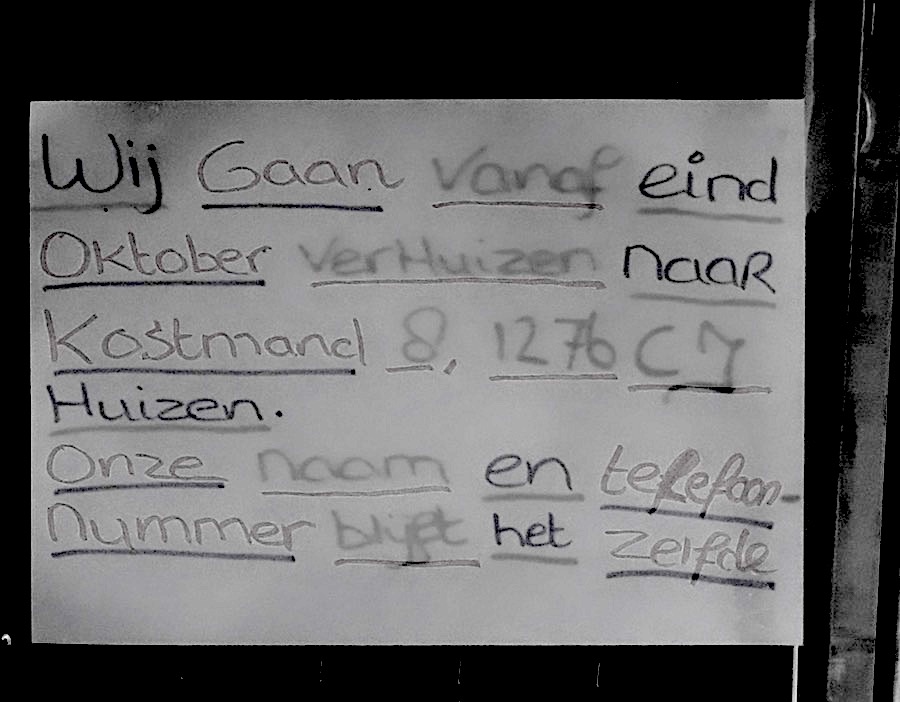 Wij Gaan Vanaf eind
Oktober VerHuizen naaR
Kostmand 8, 1276 CJ
Huizen.
Onze naam en telefoon-
nummer blijft het zelfde